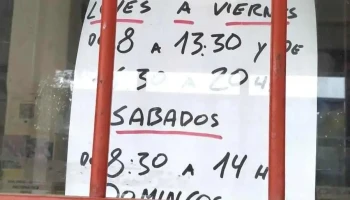 A VIERNES
8 A 13:30 Y DE
30 A 20 H
SABADOS
8:30 A 14 H
DOMINGOS